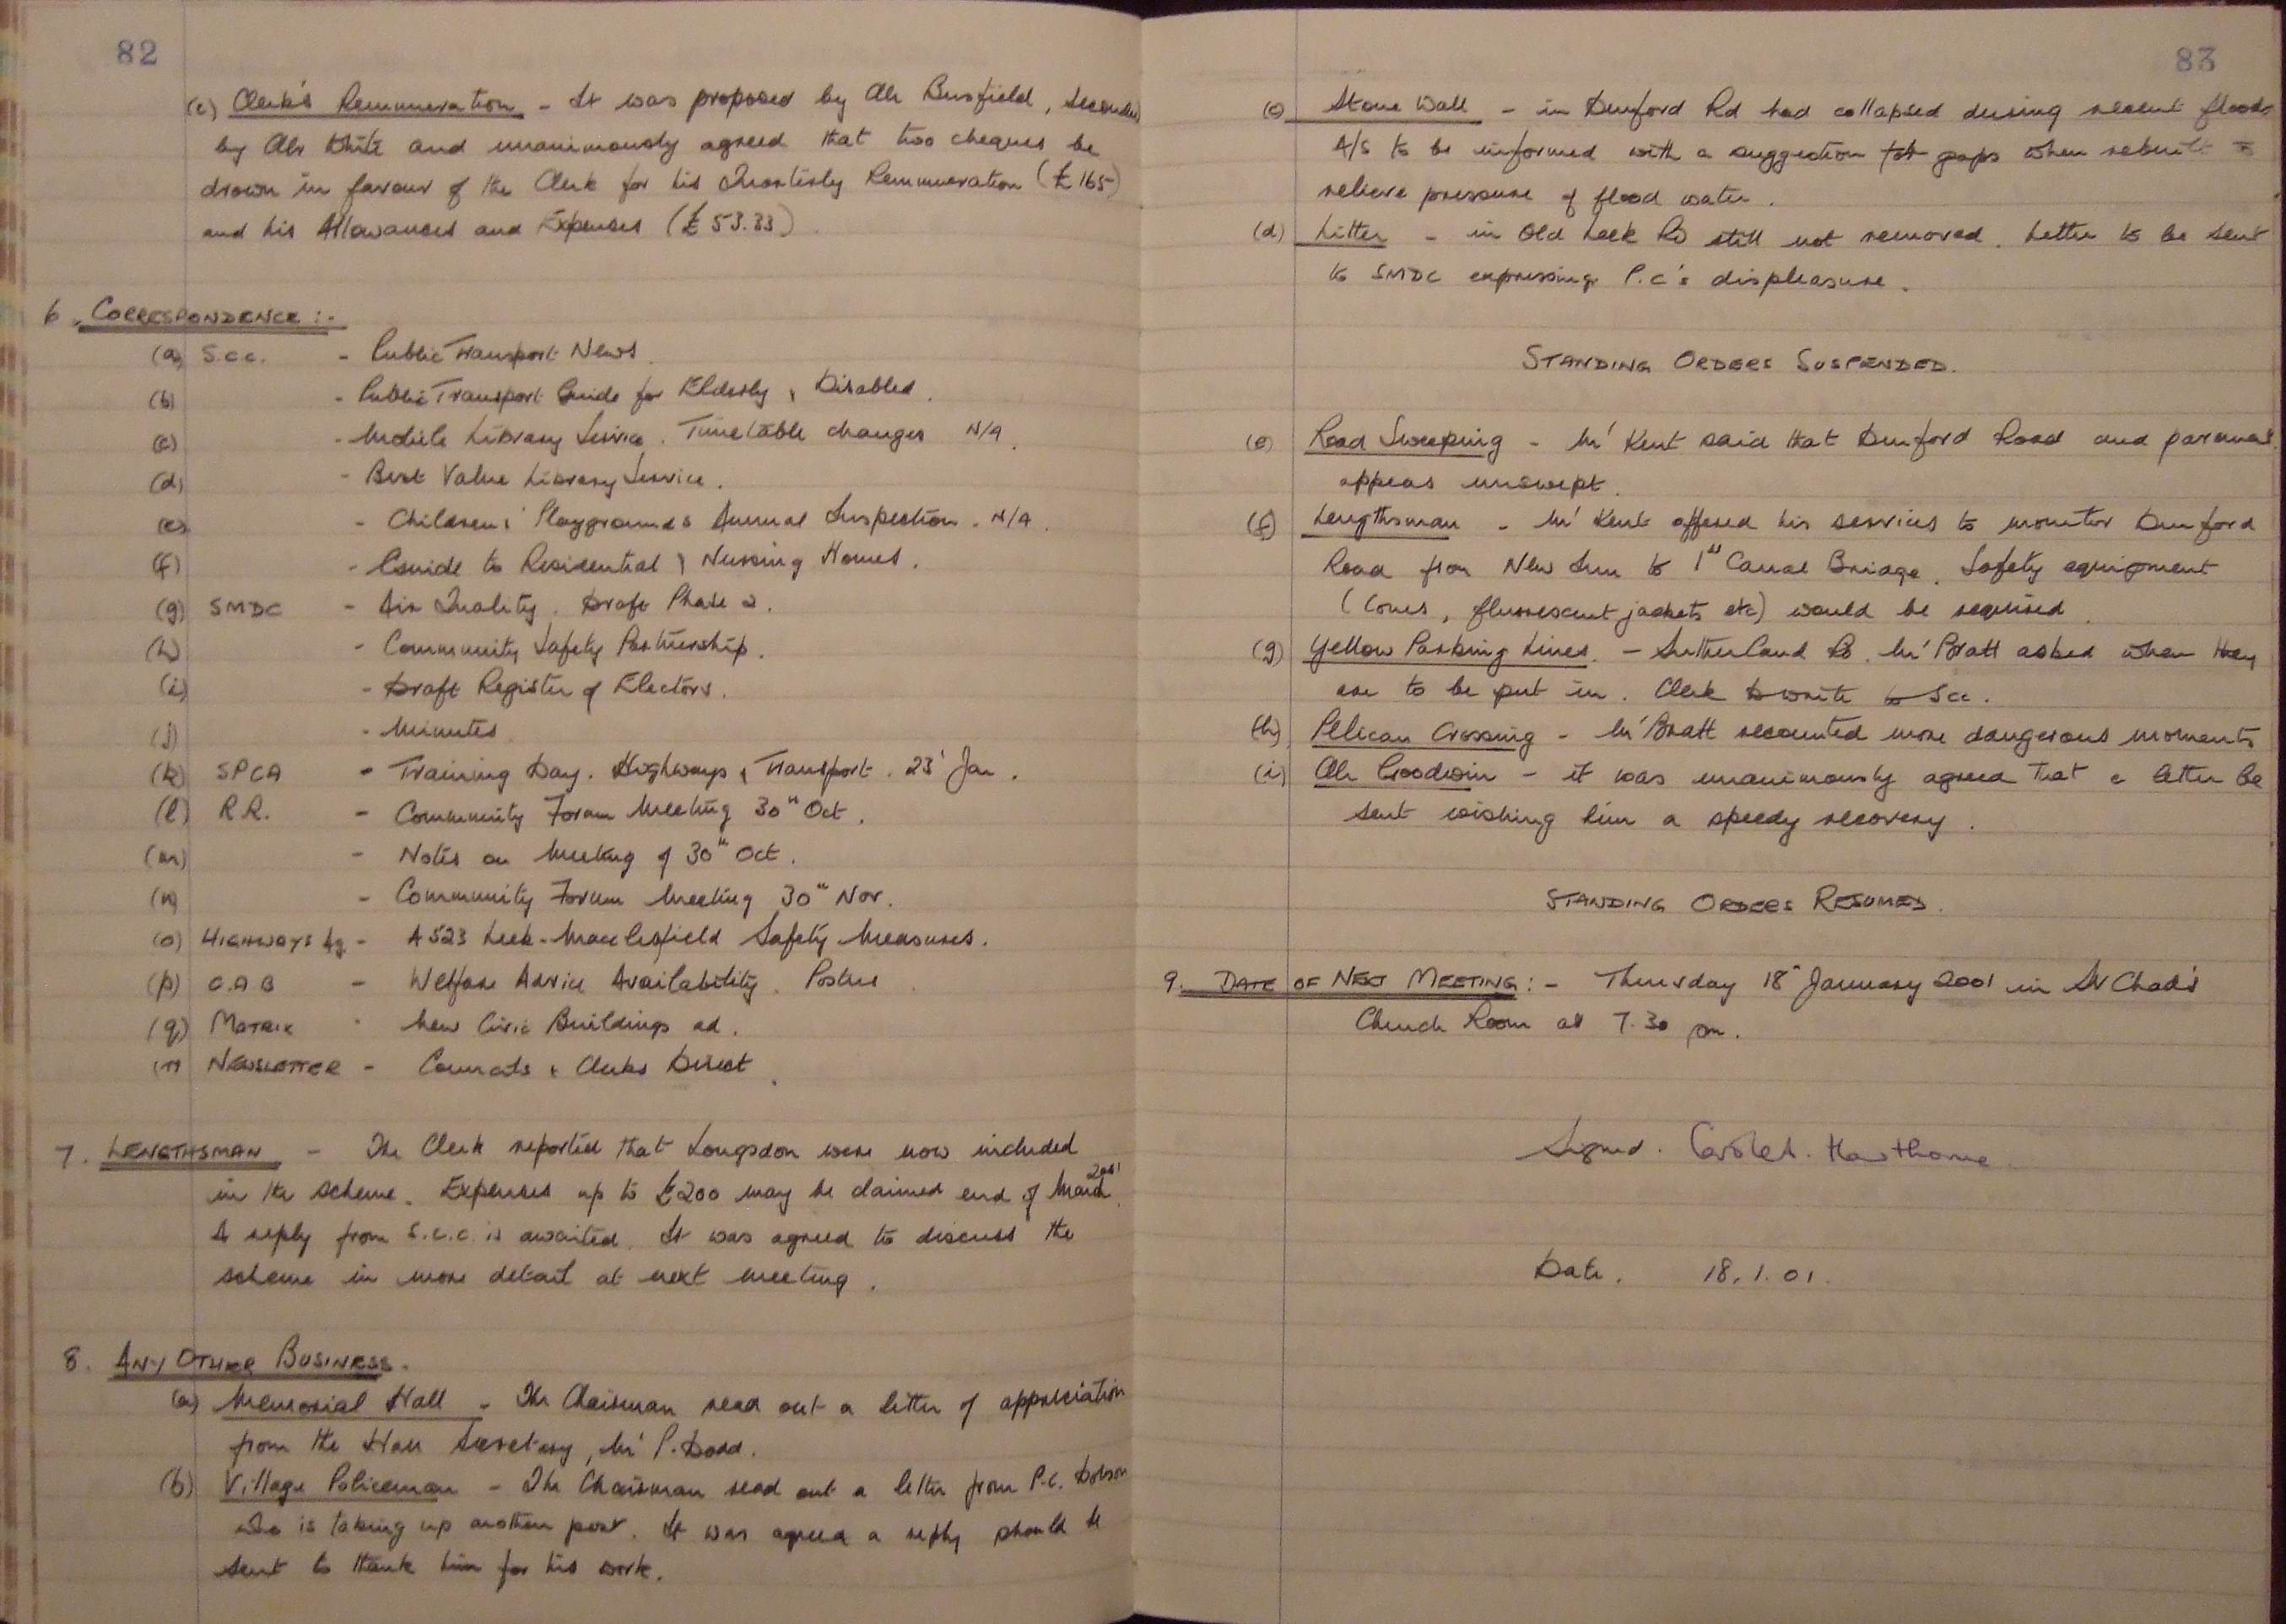 82
(c) Clerk's Remuneration - It was proposed by Cllr Busfield, seconded
by Cllr White and unanimously agreed that two cheques be
drawn in favour of the Clerk for his Quarterly Remuneration (£165)
and his Allowances and Expenses (£53.33).
6. CORRESPONDENCE :-
(a) S.C.C. - Public Transport News.
(b) - Public Transport Guide for Elderly & Disabled.
(c) - Mobile Library Service. Timetable changes N/A.
(d) - Best Value Library Service.
(e) - Childrens' Playgrounds Annual Inspection. N/A.
(f) - Guide to Residential & Nursing Homes.
(g) SMDC - Air Quality. Draft Phase 2.
(h) - Community Safety Partnership.
(i) - Draft Register of Electors.
(j) - Minutes
(k) SPCA - Training Day. Highways & Transport. 23' Jan.
(l) R.R. - Community Forum Meeting 30th Oct.
(m) - Notes on Meeting of 30th Oct.
(n) - Community Forum Meeting 30th Nov.
(o) HIGHWAYS Ag. - A523 Leek-Macclesfield Safety Measures.
(p) C.A.B - Welfare Advice Availability. Poster
(q) MATRIX - New Civic Buildings ad.
(r) NEWSLETTER - Councils & Clerks Direct.
7. LENGTHSMAN - The Clerk reported that Longsdon were now included
in the scheme. Expenses up to £200 may be claimed end of March 2001.
A reply from S.C.C. is awaited. It was agreed to discuss the
scheme in more detail at next meeting.
8. ANY OTHER BUSINESS.
(a) Memorial Hall - The Chairman read out a letter of appreciation
from the Hall Secretary, Mr P. Dodd.
(b) Village Policeman - The Chairman read out a letter from P.C. Dobson
who is taking up another post. It was agreed a reply should be
sent to thank him for his work.
83
(c) Stone Wall - in Denford Rd had collapsed during recent floods.
A/S to be informed with a suggestion for gaps when rebuilt to
relieve pressure of flood water.
(d) Litter - in Old Leek Rd still not removed. Letter to be sent
to SMDC expressing P.C's displeasure.
STANDING ORDERS SUSPENDED.
(e) Road Sweeping - Mr Kent said that Denford Road and
appears unswept.
(f) Lengthsman - Mr Kent offered his services to monitor Denford
Road from New Inn to 1st Canal Bridge. Safety equipment
(cones, flurescent jackets etc) would be required.
(g) Yellow Parking Lines. - Sutherland Rd. Mr Pratt asked when they
are to be put in. Clerk to write to Scc.
(h) Pelican Crossing - Mr Pratt recounted more dangerous moments
(i) Cllr Goodwin - it was unanimously agreed that a letter be
sent wishing him a speedy recovery.
STANDING ORDERS RESUMED.
9. DATE OF NEXT MEETING :- Thursday 18th January 2001 in St Chad's
Church Room at 7.30 pm.
Signed. Hawthorne
Date. 18.1.01.